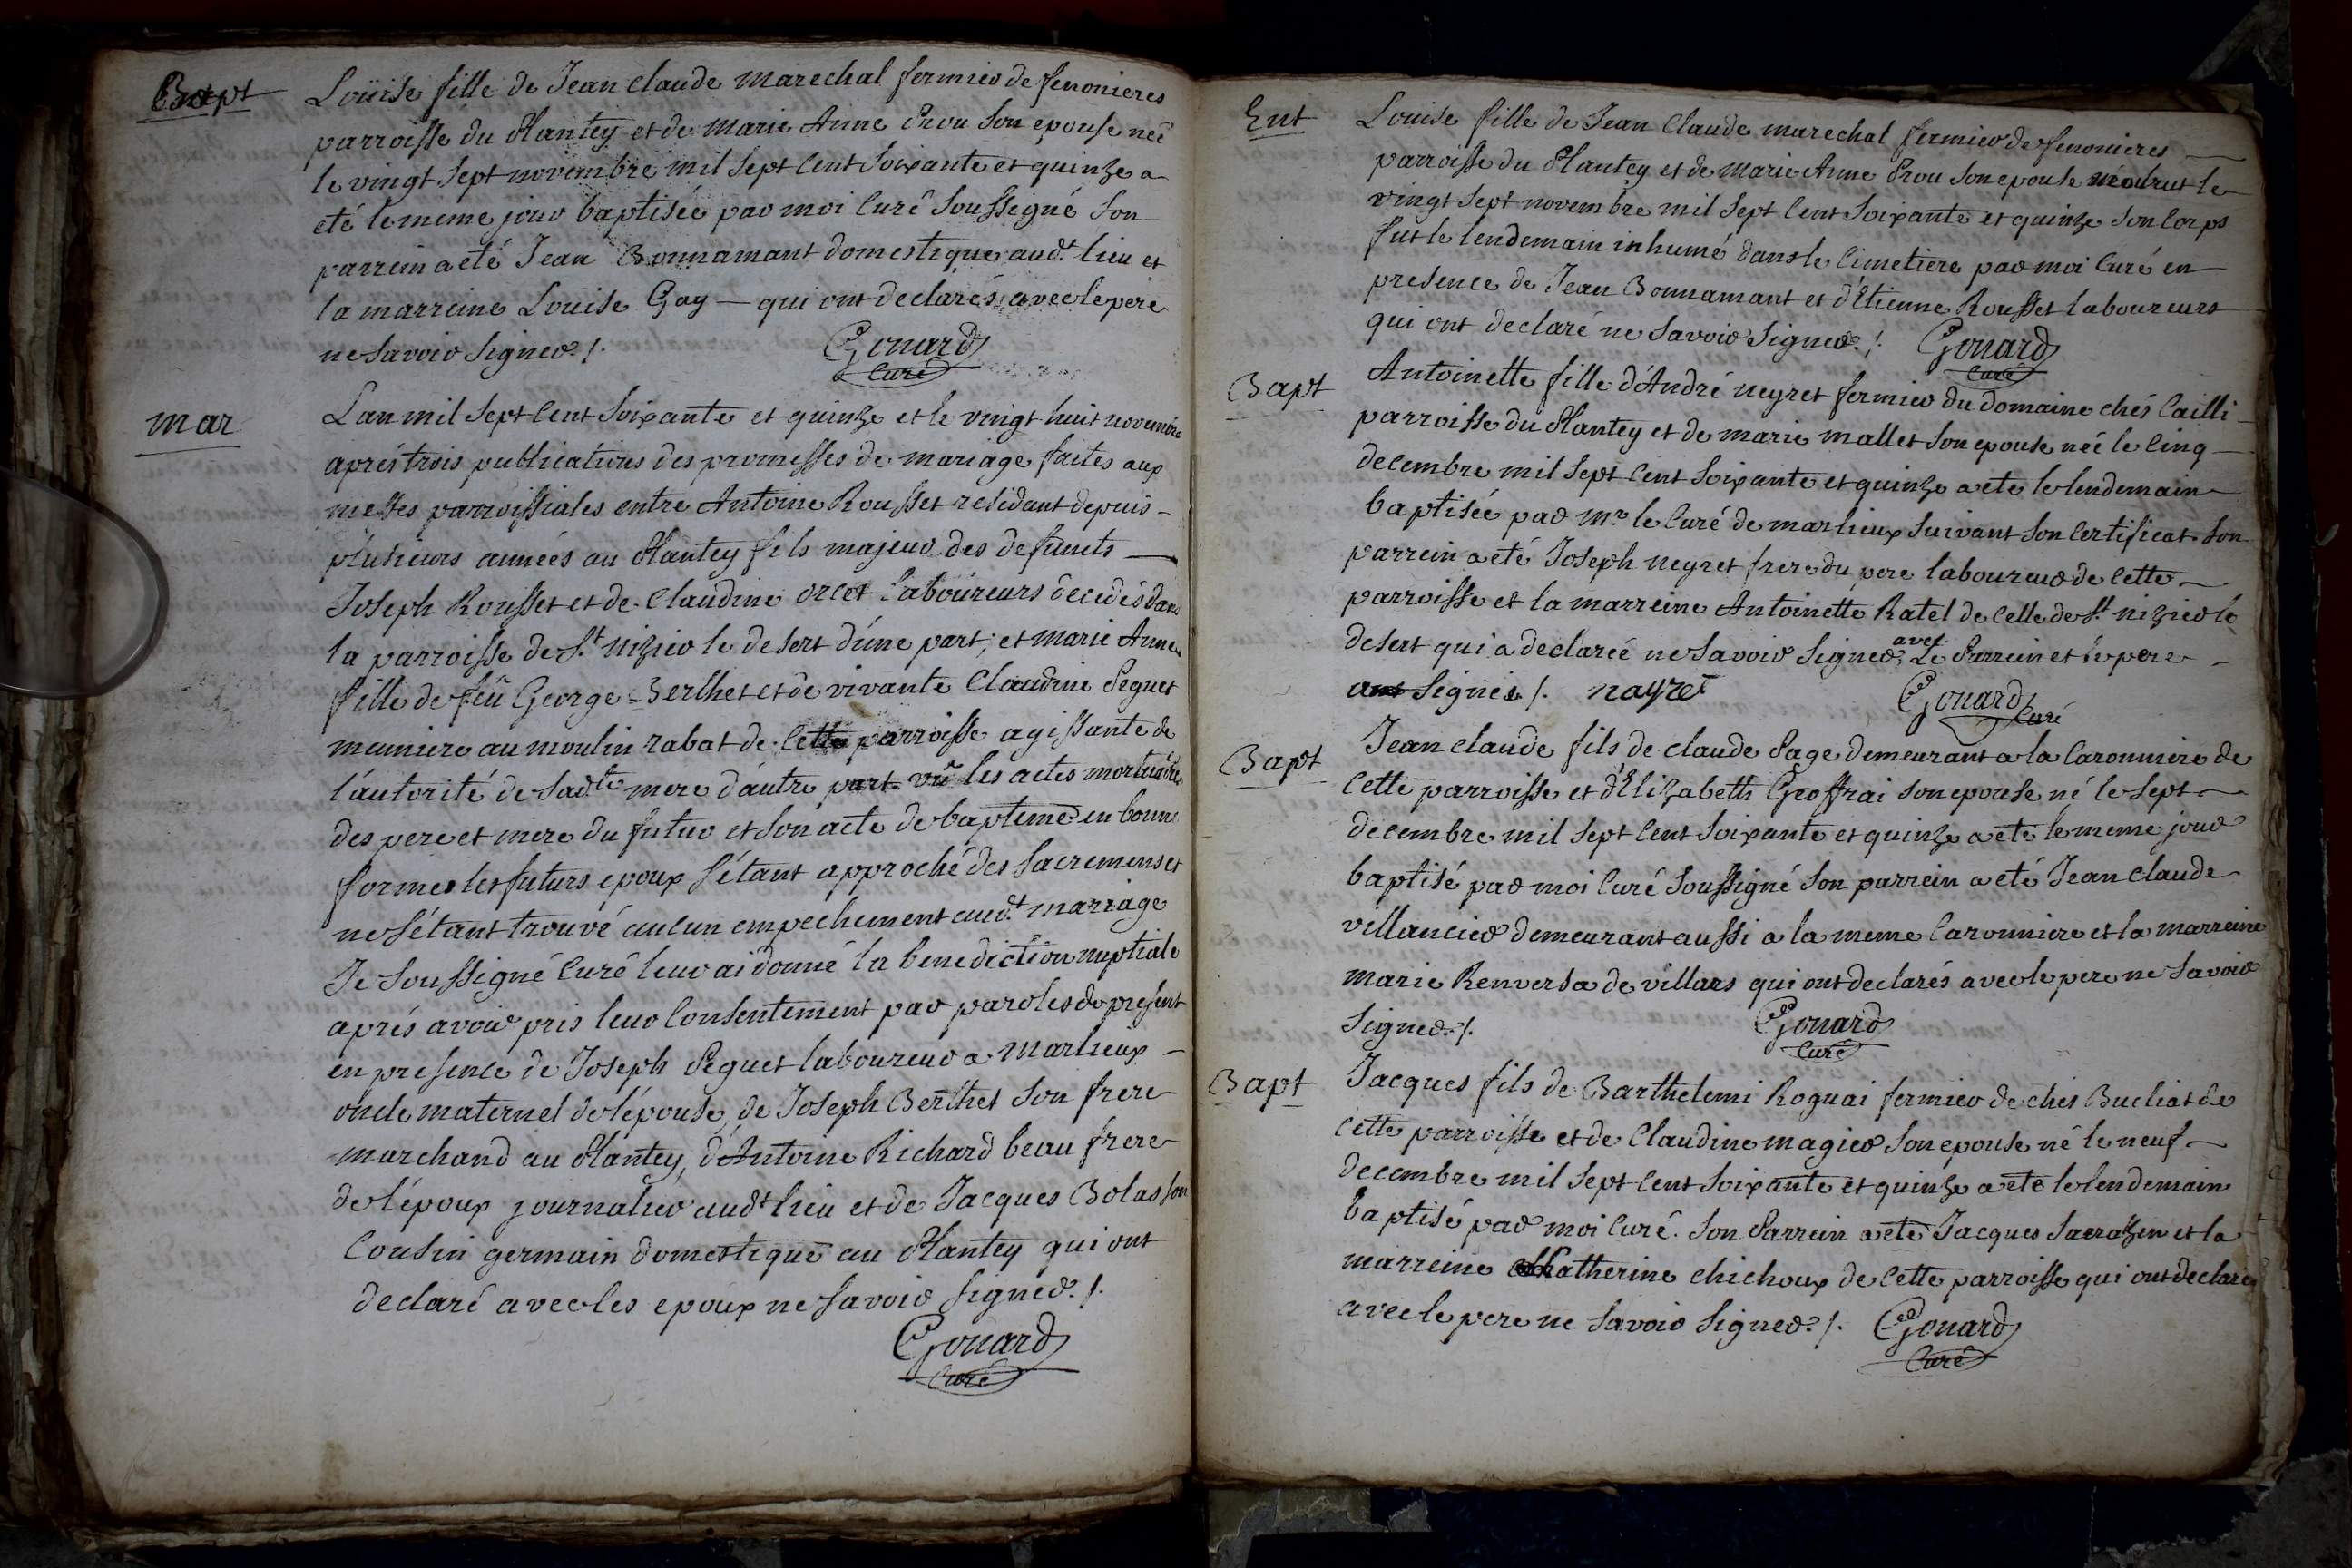 Bapt
Louise fille de Jean claude marechal fermier de fenonieres
parroisse du Plantey et de Marie Anne Prou son epouse neé
le vingt sept novembre mil sept cent soixante et quinze a
eté le meme jour baptisée par moi curé soussigné son
parrein a eté Jean Bonnamant domestique aud.t lieu et
la marreine Louise Gay — qui ont declarés avec le pere
ne savoir signer ./.
Gouard
Curé
mar
L'an mil sept cent soixante et quinze et le vingt huit novembre
aprés trois publications des promesses de mariage faites aux
messes parroissiales entre Antoine Rousset residant depuis
plusieurs années au Plantey fils majeur des defunts
Joseph Rousset et de Claudine orcet laboureurs decedés dans
la parroisse de S.t nizier le desert d'une part; et marie Anne
fille de feu George Berthet et de vivante Claudine Peguet
meuniere au moulin rabat de cette parroisse agissante de
l'autorité de sad.te mere d'autre part. vu les actes mortuaires
des pere et mere du futur et son acte de bapteme en bonne
forme les futurs epoux s'étant approché des sacremens et
ne s'étant trouvé aucun empechement aud.t mariage
Je soussigné curé leur ai donné la benediction nuptiale
aprés avoir pris leur consentement par paroles de present
en presence de Joseph Peguet laboureur a Marlieux
oncle maternel de l'épouse, de Joseph Berthet son frere
marchand au Plantey, d'Antoine Richard beau frere
de l'époux journalier aud.t lieu et de Jacques Bolas son
cousin germain domestique au Plantey qui ont
declaré avec les epoux ne savoir signer ./.
Gouard
Curé
Ent
Louise fille de Jean Claude marechal fermier de fenonieres
parroisse du Plantey et de Marie Anne Prou son epouse mourut le
vingt sept novembre mil sept cent soixante et quinze son corps
fut le lendemain inhumé dans le cimetiere par moi curé en
presence de Jean Bonnamant et d'Etienne Rousset laboureurs
qui ont declaré ne savoir signer ./.
Gouard
Curé
Bapt
Antoinette fille d'André neyret fermier du domaine chés Cailli
parroisse du Plantey et de marie mallet son epouse neé le cinq
decembre mil sept cent soixante et quinze a ete le lendemain
baptisée par M.r le curé de marlieux suivant son certificat son
parrein a eté Joseph neyret frere du pere laboureur de cette
parroisse et la marreine Antoinette Ratel de celle de S.t nizier le
desert qui a declareé ne savoir signer avec Le Parrein et le pere
signés ./. nayret
Gouard
Curé
Bapt
Jean claude fils de claude Page demeurant a la Caronniere de
cette parroisse et d'Elizabeth Geoffrai son epouse né le sept
decembre mil sept cent soixante et quinze a eté le meme jour
baptisé par moi curé soussigné son parrein a eté Jean Claude
villancier demeurant aussi a la meme Caronniere et la marreine
marie Renversa de villars qui ont declarés avec le pere ne savoir
signer ./.
Gouard
Curé
Bapt
Jacques fils de Barthelemi Roguai fermier de chés Bucliat de
cette parroisse et de Claudine magier son epouse né le neuf
decembre mil sept cent soixante et quinze a eté le lendemain
baptisé par moi curé. son Parrein a eté Jacques sacrazin et la
marreine Katherine chichoux de cette parroisse qui ont declarés
avec le pere ne savoir signer ./.
Gouard
Curé